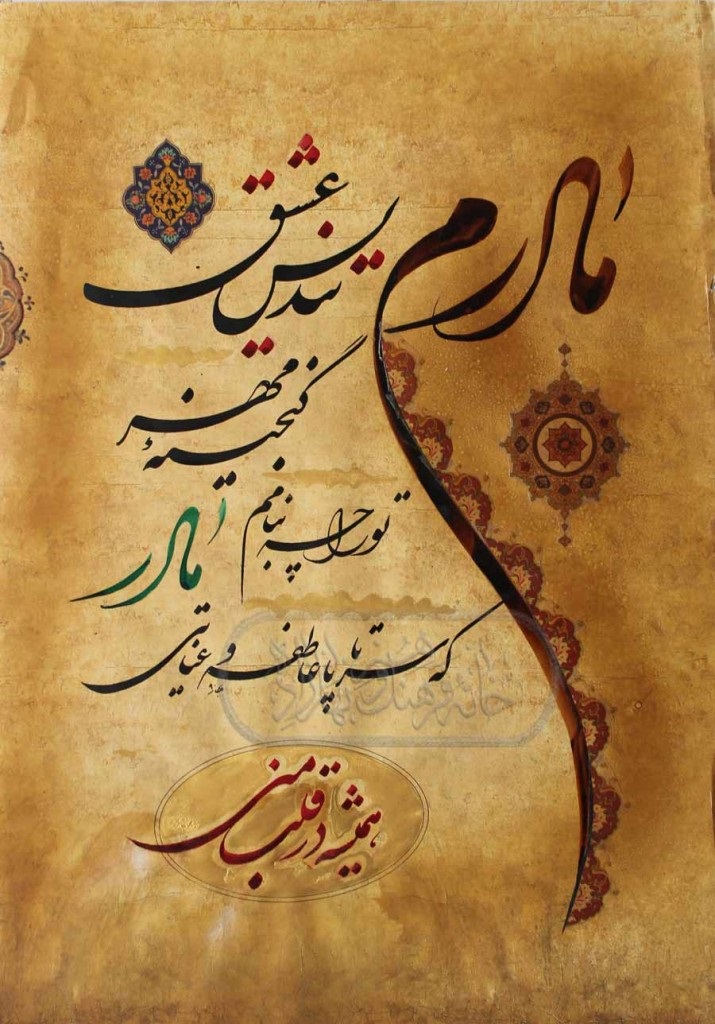 مادرم
تندیس عشق
گنجینهٔ مهر
تو را چه بنامم
مادر
که سر تا پا عاطفه و عنایتی
همیشه در قلب منی
خانه فرهنگ و هنر بهزاد